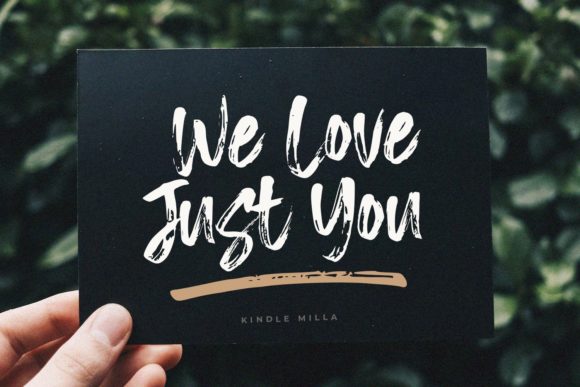 We Love
Just You
KINDLE MILLA